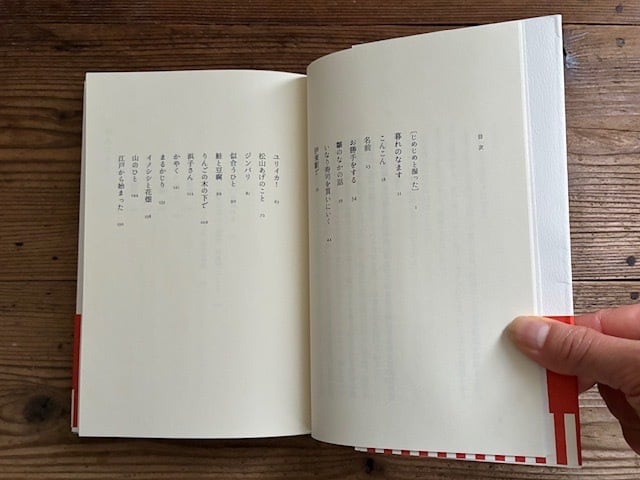 目次
［じめじめと湿った］ 1
暮れのなます 11
こんこん 18
名前 25
お勝手をする 34
鄙のなかの話 39
いなり寿司を買いにいく 44
ユリイカ！ 63
松山あげのこと 72
ジンバリ 81
似合うひと 90
鮭と豆腐 99
りんごの木の下で 108
浜子さん 112
かやく 121
まるかじり 129
イノシシと花畑 138
山のひと 144
江戸から始まった 150